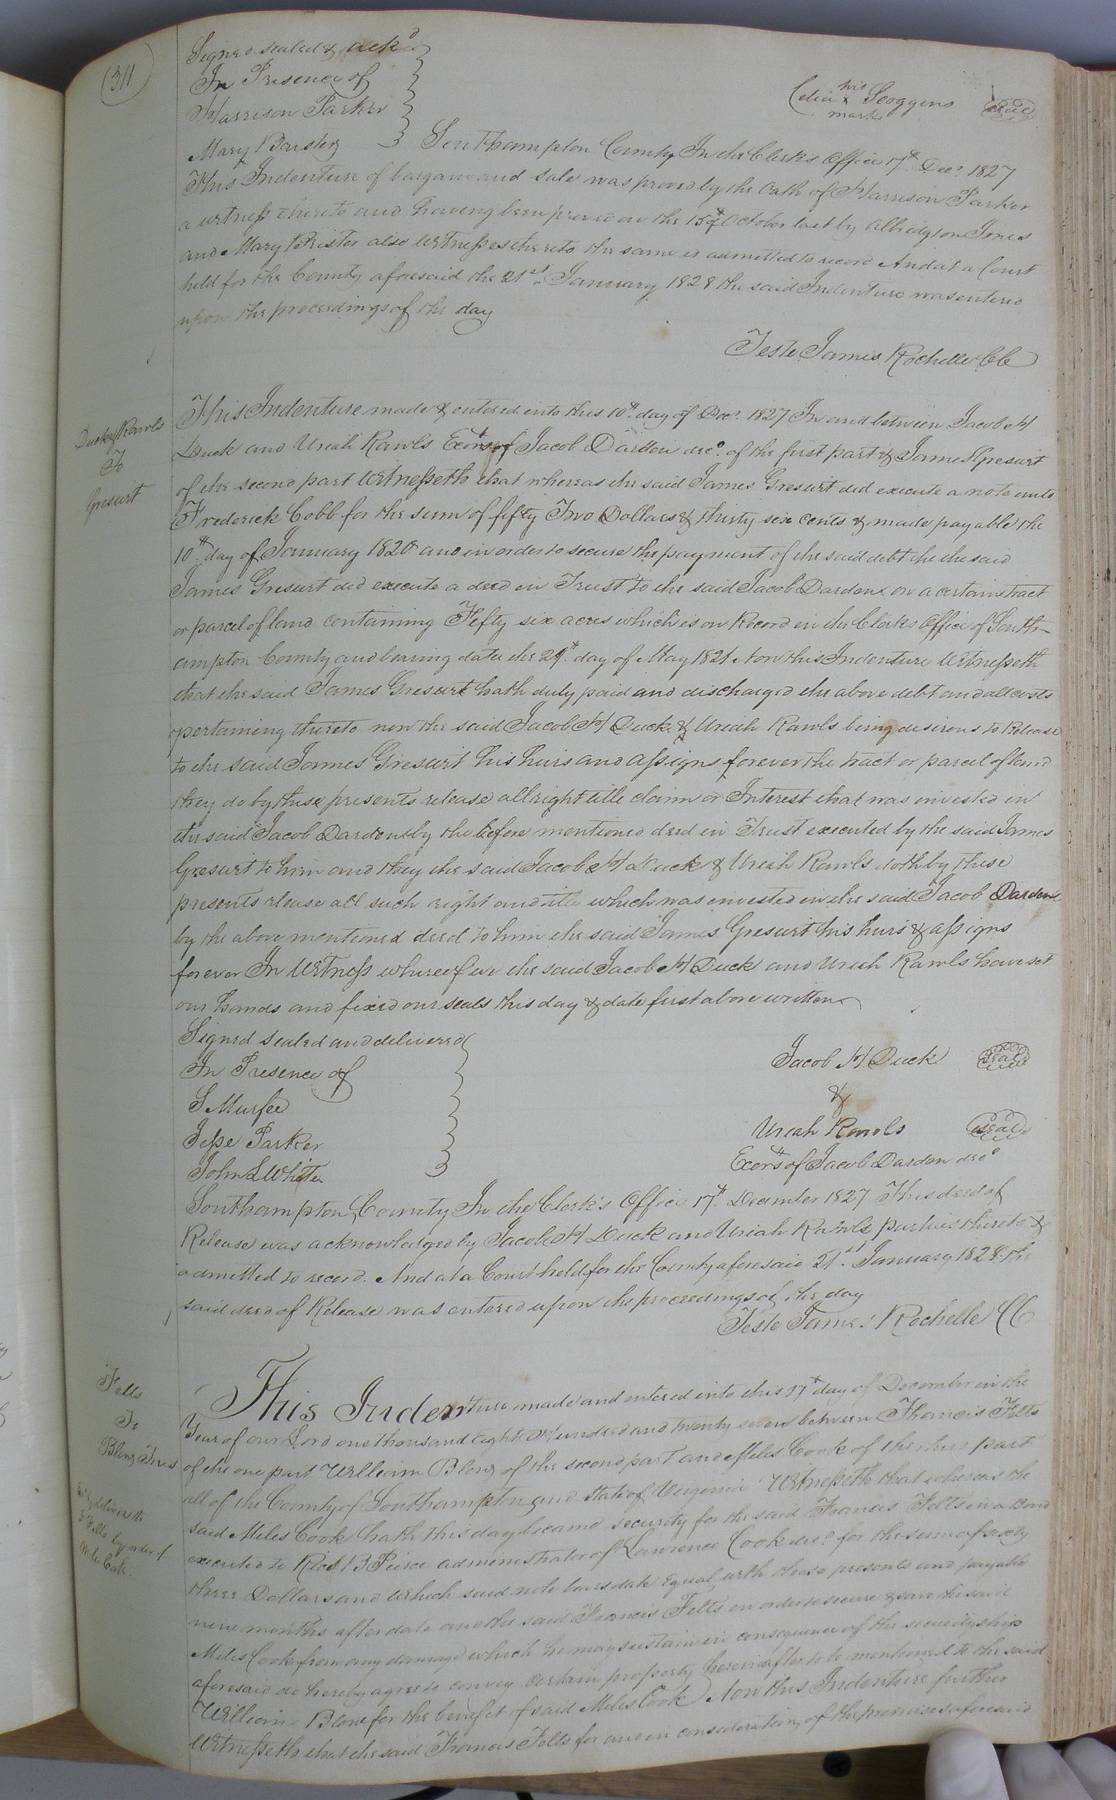 (311)
Signed sealed & ackd
In Presence of
Harrison Parker
Mary Barster
Celia his x mark Scoggins Seal
Southampton County In the Clerk's Office 17th Decr 1827
This Indenture of bargain and sale was proved by the Oath of Harrison Parker
a witness thereto and having been proved on the 15th October last by Albridgton Jones
and Mary Barster also witnesses thereto the same is admitted to record And at a Court
held for the County aforesaid the 21st January 1828 the said Indenture was entered
upon the proceedings of the day
Teste James Rochelle CC
Duck & Rawls
To
Gresurt
This Indenture made & entered into this 10th day of Decr 1827 In and between Jacob H
Duck and Uriah Rawls Exors of Jacob Darden decd. of the first part & James Gresurt
of the second part Witnesseth that whereas the said James Gresurt did execute a note unto
Frederick Cobb for the sum of fifty Two Dollars & thirty six cents & made payable the
10th day of January 1820 and in order to secure the payment of the said debt the the said
James Gresurt did execute a deed in Trust to the said Jacob Darden on a certain tract
or parcel of land containing Fifty six acres which is on Record in the Clerks Office of South-
ampton County and bearing date the 29th day of May 1821 Now this Indenture Witnesseth
that the said James Gresurt hath duly paid and discharged the above debt and all costs
pertaining thereto now the said Jacob H Duck & Uriah Rawls being desirous to Release
to the said James Gresurt his heirs and assigns forever the tract or parcel of land
they do by these presents release all right title claim or Interest that was invested in
the said Jacob Darden by the before mentioned deed in Trust executed by the said James
Gresurt to him and they the said Jacob H Duck & Uriah Rawls doth by these
presents release all such right and title which was invested in the said Jacob Darden
by the above mentioned deed to him the said James Gresurt his heirs & assigns
forever In Witness whereof we the said Jacob H Duck and Uriah Rawls have set
our hands and fixed our seals this day & date first above written
Signed sealed and delivered
In Presence of
S Murfee
Jesse Parker
John L White
Jacob H Duck Seal
&
Uriah Rawls Seal
Exors of Jacob Darden decd
Southampton County In the Clerk's Office 17th December 1827 This deed of
Release was acknowledged by Jacob H Duck and Uriah Rawls parties thereto &
admitted to record. And at a Court held for the County aforesaid 21st January 1828 the
said deed of Release was entered upon the proceedings of the day
Teste James Rochelle CC
Felts
To
Blow Trus
delivered to
F Felts by order of
Miles Cook
This Indenture made and entered into this 17th day of December in the
Year of our Lord one thousand Eight Hundred and twenty seven between Francis Felts
of the one part William Blow of the second part and Miles Cook of the third part
all of the County of Southampton and State of Virginia Witnesseth that whereas the
said Miles Cook hath this day became security for the said Francis Felts in a Bond
executed to B Peirce administrator of Lawrence Cook decd. for the sum of sixty
three Dollars and which said note bears date Equal with these presents and payable
nine months after date and the said Francis Felts in order to secure & save the said
Miles Cook from any damage which he may sustain in consequence of the securityship
aforesaid do hereby agree to convey certain property hereinafter to be mentioned to the said
William Blow for the benefit of said Miles Cook Now this Indenture further
Witnesseth that the said Francis Felts for and in consideration of the premises aforesaid